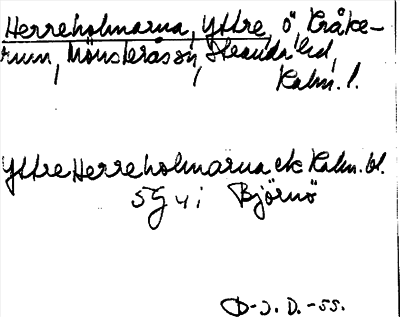 Herreholmarna, Yttre, ö Kråke-
rum, Mönsterås sn, Stranda hd,
Kalm. l.
Yttre Herreholmarna ek Kalm. bl.
5G4i Björnö
D-J. D. -55.